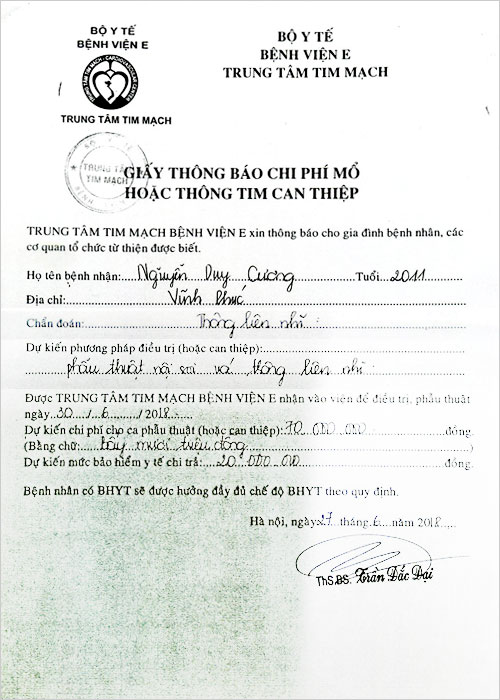 BỘ Y TẾ
BỆNH VIỆN E
TRUNG TÂM TIM MẠCH
BỘ Y TẾ
BỆNH VIỆN E
TRUNG TÂM TIM MẠCH
TRUNG TÂM
TIM MẠCH
GIẤY THÔNG BÁO CHI PHÍ MỔ
HOẶC THÔNG TIM CAN THIỆP
TRUNG TÂM TIM MẠCH BỆNH VIỆN E xin thông báo cho gia đình bệnh nhân, các
cơ quan tổ chức từ thiện được biết.
Họ tên bệnh nhân: Nguyễn Duy Cương Tuổi 2011
Địa chỉ: Vĩnh Phúc
Chẩn đoán: Thông liên nhĩ
Dự kiến phương pháp điều trị (hoặc can thiệp):
phẫu thuật nội soi vá thông liên nhĩ
Được TRUNG TÂM TIM MẠCH BỆNH VIỆN E nhận vào viện để điều trị, phẫu thuật
ngày 30 / 6 / 2018
Dự kiến chi phí cho ca phẫu thuật (hoặc can thiệp): 70 000 000 đồng.
(Bằng chữ: bảy mươi triệu đồng )
Dự kiến mức bảo hiểm y tế chi trả: 20 000 000 đồng.
Bệnh nhân có BHYT sẽ được hưởng đầy đủ chế độ BHYT theo quy định.
Hà nội, ngày 27 tháng 6 năm 2018
ThS.BS. Trần Đắc Đại